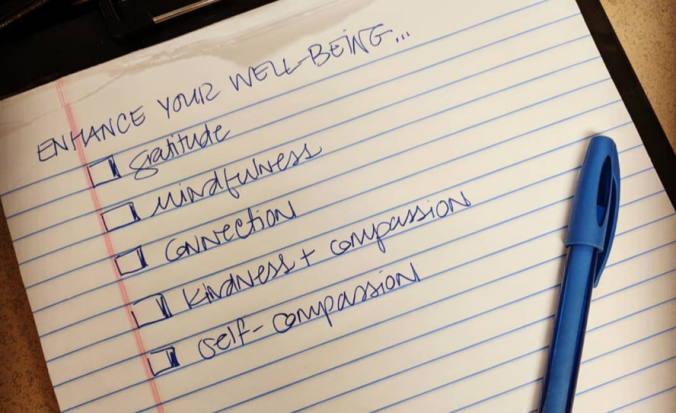 ENHANCE YOUR WELL-BEING...
gratitude
mindfulness
connection
kindness + compassion
self-compassion